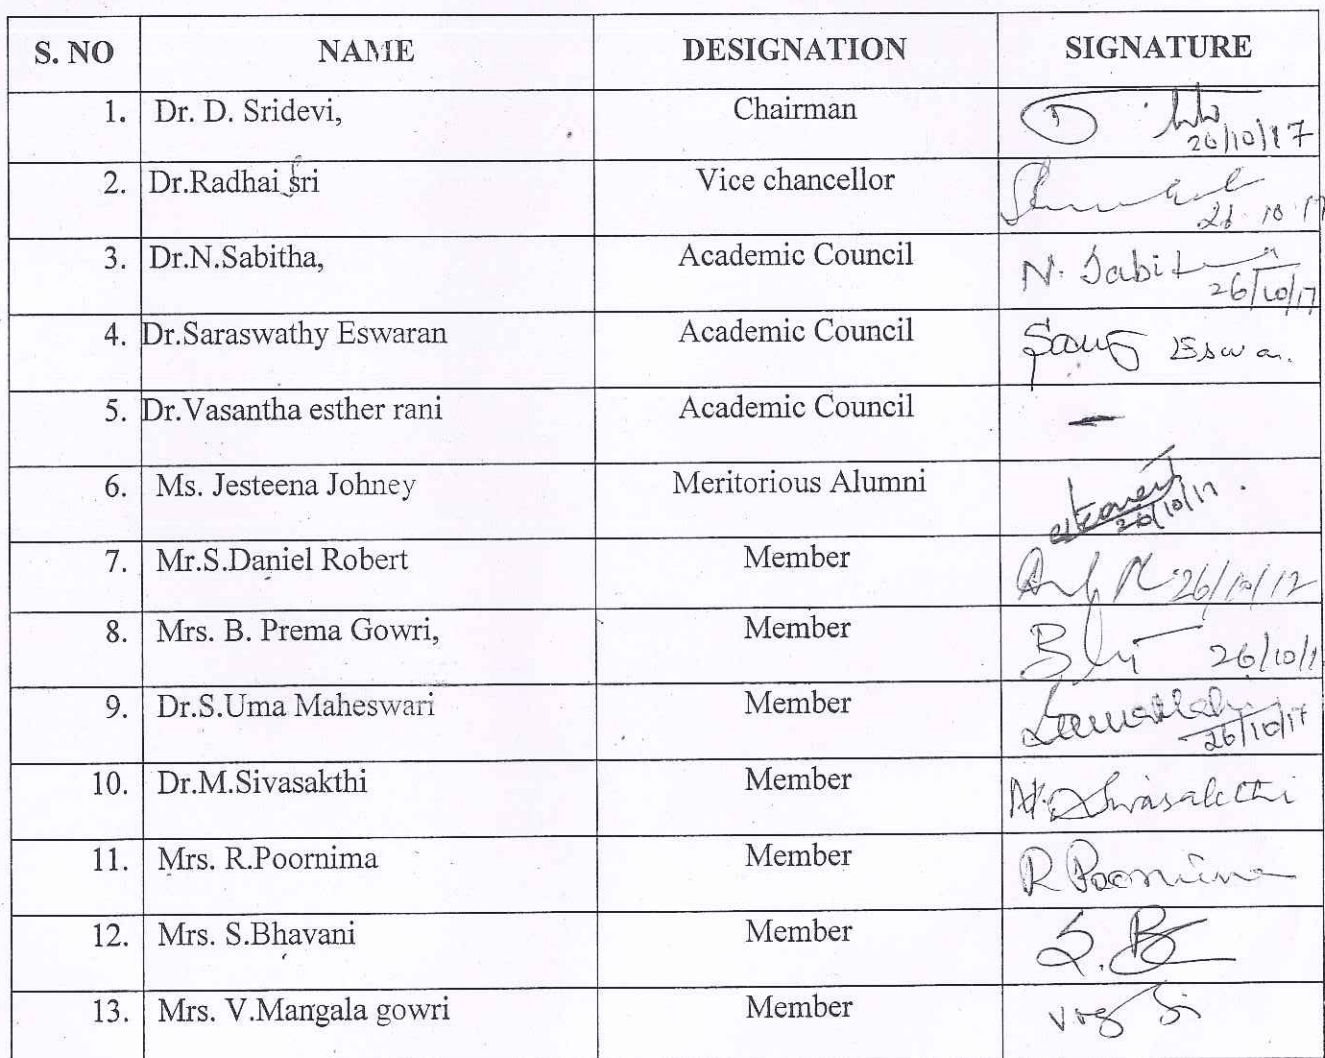 S. NO NAME DESIGNATION SIGNATURE
1. Dr. D. Sridevi, Chairman
26/10/17
2. Dr.Radhai sri Vice chancellor
26.10.17
3. Dr.N.Sabitha, Academic Council N. Sabitha
26/10/17
4. Dr.Saraswathy Eswaran Academic Council
5. Dr.Vasantha esther rani Academic Council -
6. Ms. Jesteena Johney Meritorious Alumni
26/10/17.
7. Mr.S.Daniel Robert Member 26/10/17
8. Mrs. B. Prema Gowri, Member 26/10/1
9. Dr.S.Uma Maheswari Member
26/10/17
10. Dr.M.Sivasakthi Member M. Sivasakthi
11. Mrs. R.Poornima Member R Poornima
12. Mrs. S.Bhavani Member
13. Mrs. V.Mangala gowri Member